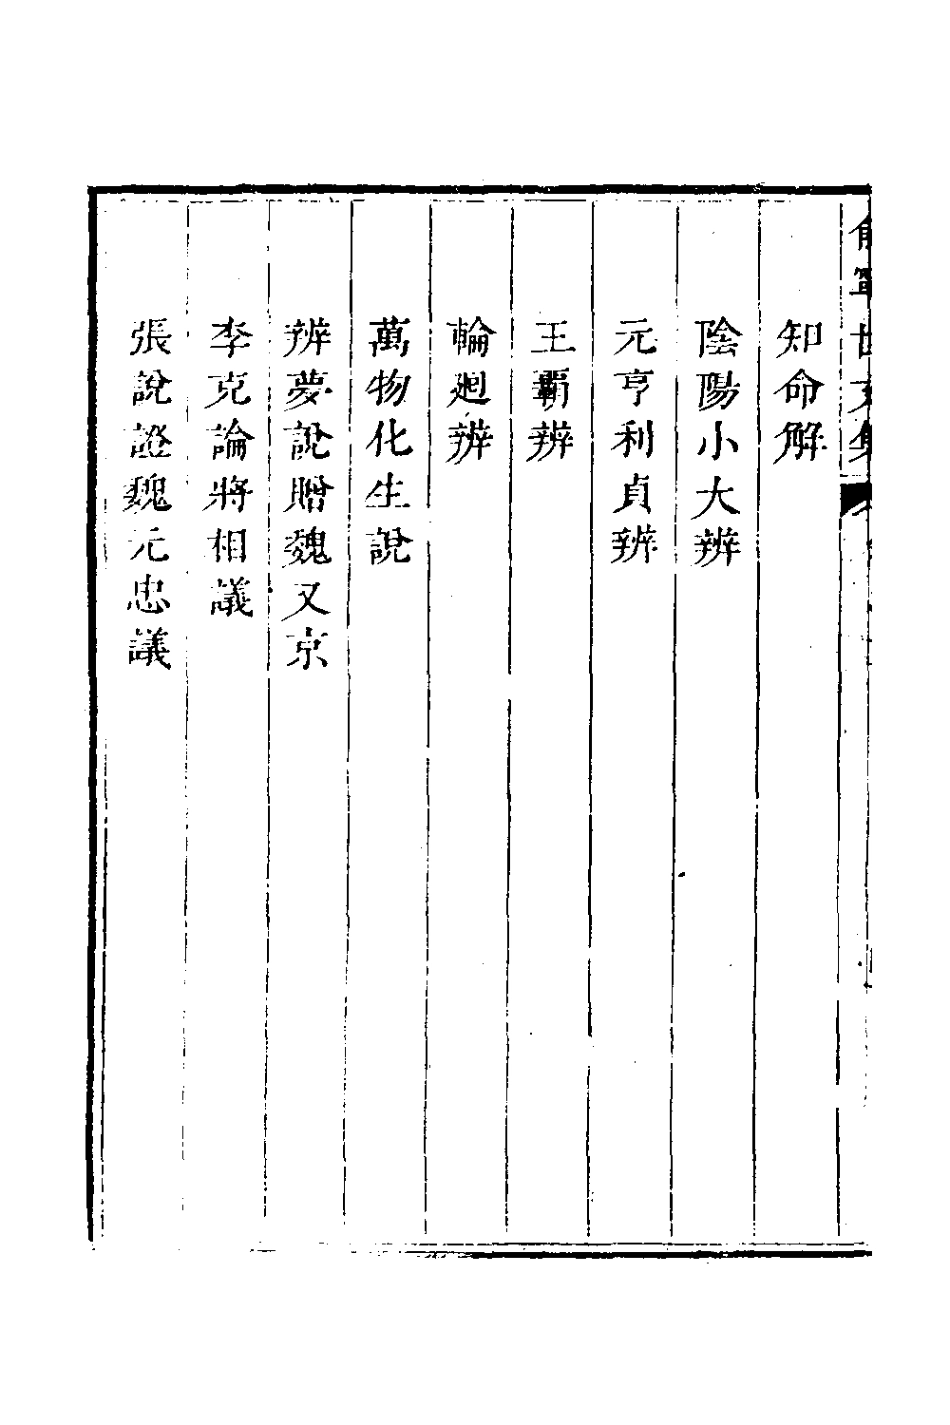 知命解
陰陽小大辨
元亨利貞辨
王霸辨
輪廻辨
萬物化生說
辨夢說贈魏又京
李克論將相議
張說證魏元忠議